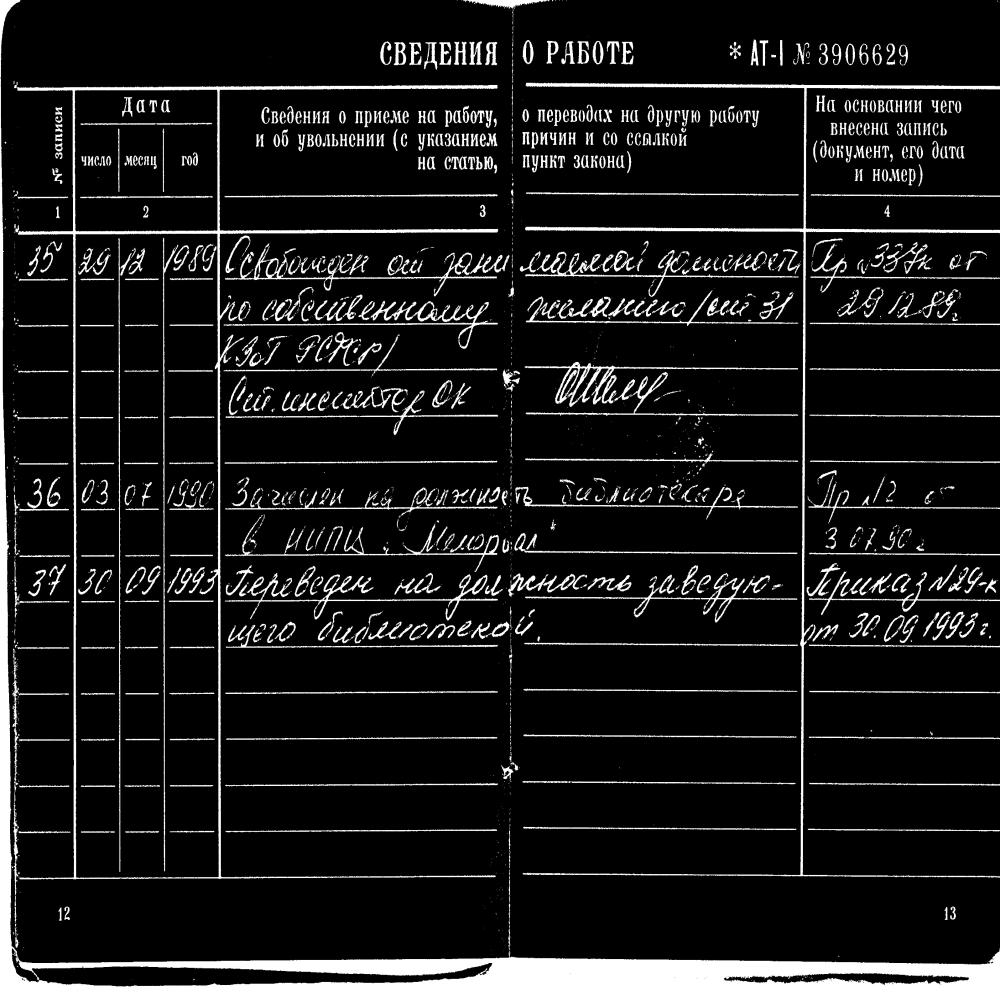 СВЕДЕНИЯ О РАБОТЕ * АТ-I № 3906629
№ записи
Дата
число месяц год
Сведения о приеме на работу, о переводах на другую работу
и об увольнении (с указанием причин и со ссылкой
на статью, пункт закона)
На основании чего
внесена запись
(документ, его дата
и номер)
1 2 3 4
35 29 12 1989 Освобожден от занимаемой должности Пр №337к от
по собственному желанию /ст. 31 29.12.89г
КЗоТ РСФСР/
Ст. инспектор ОК
36 03 07 1990 Зачислен на должность библиотекаря Пр №2 от
в НИПЦ „Мемориал" 3.07.90г
37 30 09 1993 Переведен на должность заведую- Приказ №29-к
щего библиотекой. от 30.09.1993г.
12 13